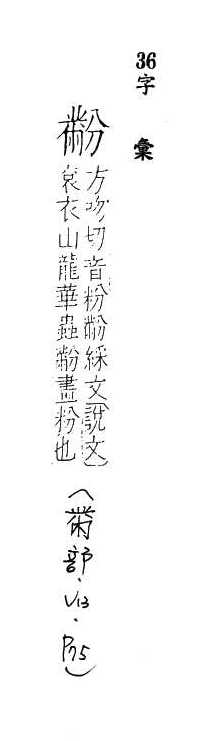 36字彙
黺
方吻切音粉黺綵文〔說文〕
袞衣山龍華蟲黺畫粉也
(黹部.V13.P75)